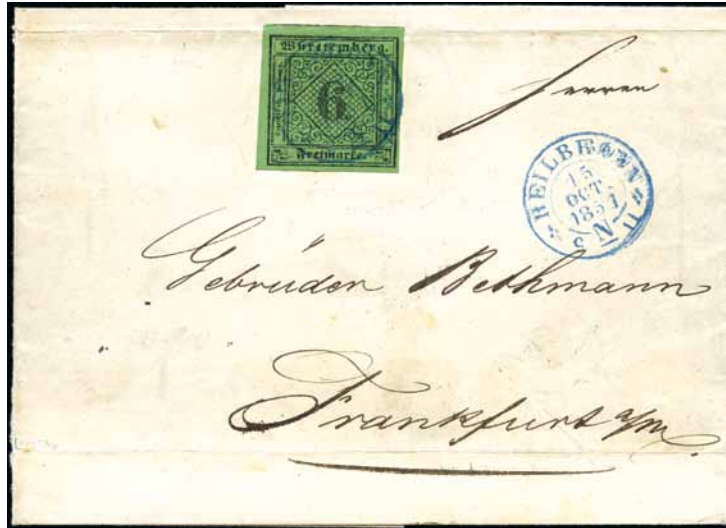 Württemberg.
6
Freimarke.
Herren
HEILBRONN
15
OCT.
1851
N
Gebrüder Bethmann
Frankfurt a/m.